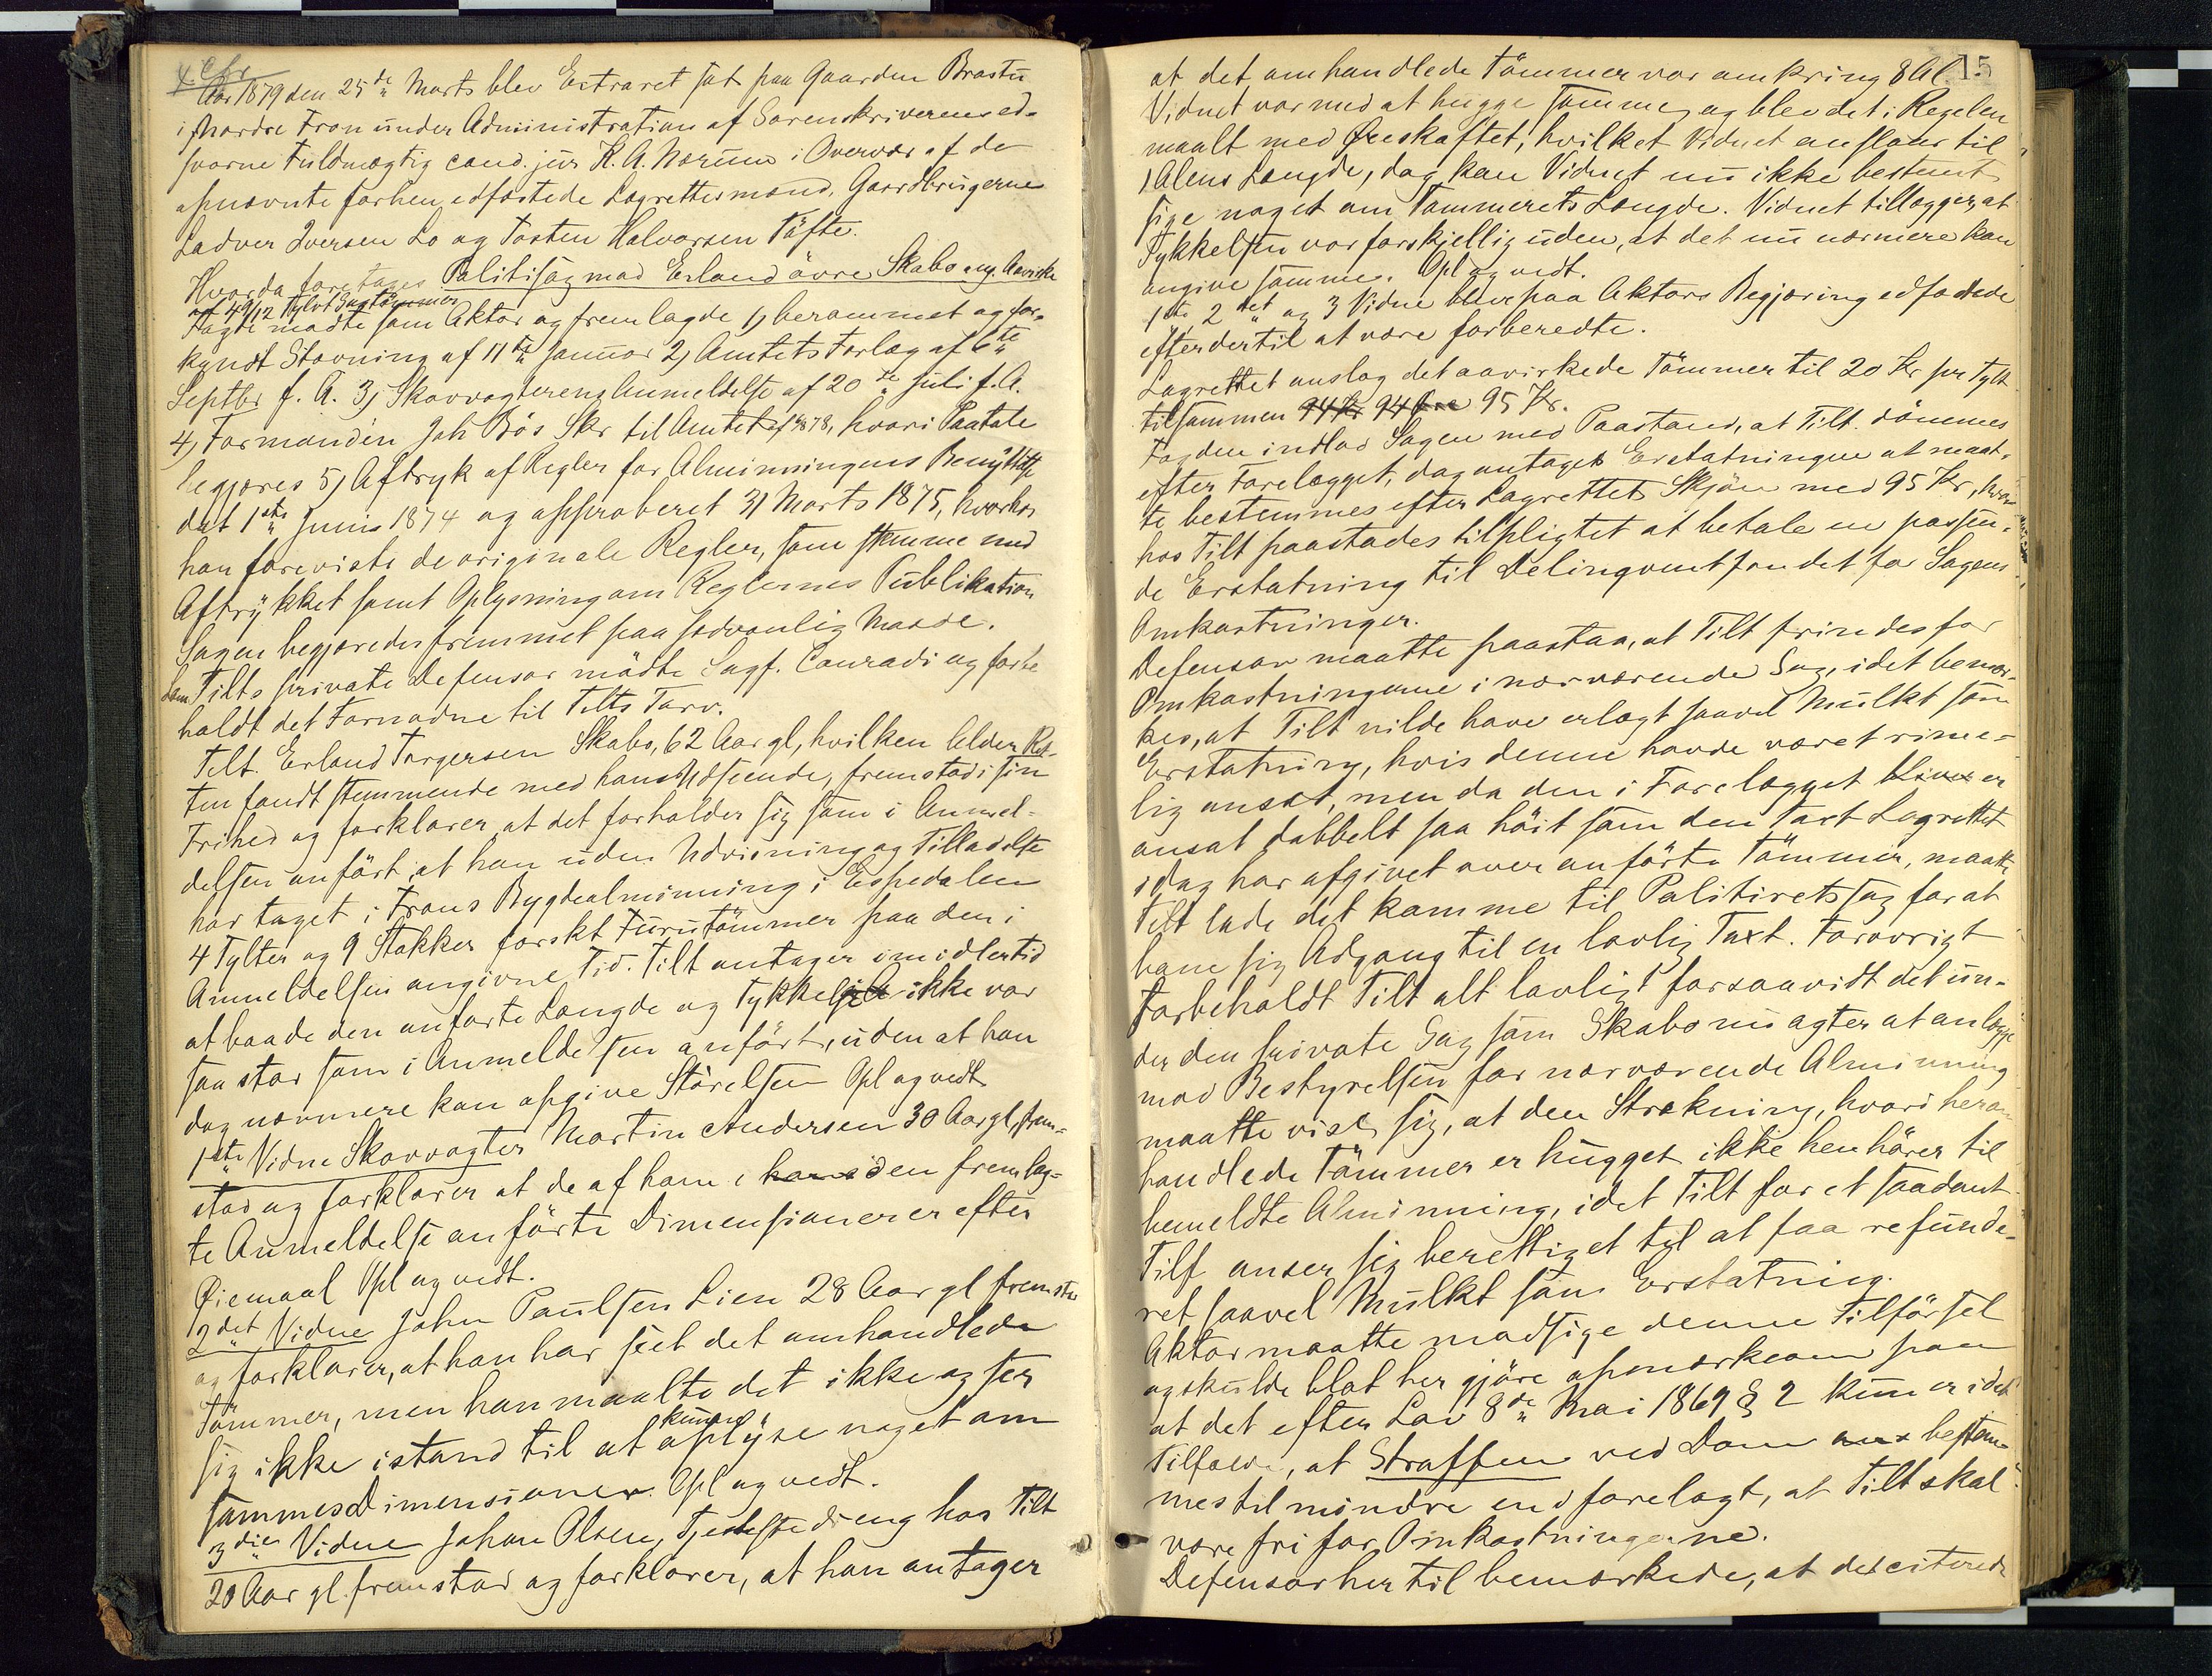 Aar 1879 den 25de Marts blev Extraret sat paa Gaarden Brastu
i Nordre Fron under Administration af Sorenskriverens ed-
svorne Fuldmægtig cand. jur K. A. Nærum i Overvær af de
opnævnte forhen edfæstede Lagrettesmænd, Gaardbrugerne
Ladver Iversen Lo og Tosten Halvorsen Töfte.
Hvorda foretages Politisag mod Erland övre Skabo ang. Aavirke
af 4 9/12 Tylvt Sagtömmer
Fogde mødte som Aktor og fremlagde 1, berammet og for-
kyndt Stævning af 11te Januar 2, Amtets Forlæg af 6te
Septbr f. A. 3, Skovvogterens Anmeldelse af 20de Juli f. A.
4, Formanden Joh Bös Skr til Amtet af 1878, hvori Paatale
begjæres 5, Aftryk af Regler for Alminningens Benyttelse
dat 1ste Juni 1874 og approberet 31 Marts 1875, hvorhos
han foreviste de originale Regler, som stemme med
Aftrykket samt Oplysning om Reglernes Publikation
Sagen begjæredes fremmet paa sædvanlig Maade.
Som Tilts private Defensor mödte Sagf. Conradi og forbe
holdt det Fornødne til Tilts Tarv.
Tilt. Erland Torgersen Skabo, 62 Aar gl, hvilken Alder Ret-
ten fandt stemmende med hans Udseende, fremstod i sin
Frihed og forklarer at det forholder sig som i Anmel-
delsen anfört, at han uden Udvisning og Tilladelse
har taget i Frons Bygdealminning i Espedalen
4 Tylter og 9 Stokker forskt Furutömmer paa den i
Anmeldelsen angivne Tid. Tilt antager imidlertid
at baade den anførte Længde og Tykkelse ikke var
saa stor som i Anmeldelsen anfört, uden at han
dog nærmere kan opgive Störelsen Opl og vedt
1ste Vidne Skovvogter Martin Andersen 30 Aar gl, frem-
stod og forklarer at de af ham i den fremlag-
te Anmeldelse anförte Dimensioner er efter
Øiemaal Opl og vedt.
2det Vidne John Paulsen Lien 28 Aar gl fremstod
og forklarer, at han har seet det omhandlede
Tömmer, men han maalte det ikke og ser
sig ikke istand til at kunne oplyse noget om
sammes Dimensioner. Opl og vedt.
3die Vidne Johan Olsen, Tjenestedreng hos Tilt
20 Aar gl. fremstod og forklarer, at han antager
15
at det omhandlede Tömmer var omkring 8 Al.
Vidnet var med at hugge samme, og blev det i Regelen
maalt med Öxeskaftet, hvilket Vidnet anslaar til
1 Alens Længde, dog kan Vidnet nu ikke bestemt
sige noget om Tømmerets Længde. Vidnet tillægger, at
Tykkelsen var forskjellig uden, at det nu nærmere kan
angive samme. Opl og vedt.
1ste 2det og 3 Vidne blev paa Aktors Begjæring edfæstede
efter dertil at være forberedte.
Lagrettet anslog det aavirkede Tömmer til 20 Kr pr Tylt
tilsammen 94 Kr 94 Øre 95 Kr.
Fogden indlod Sagen med Paastand, at Tilt. dömmes
efter Forelægget, dog antages Erstatningen at maat-
te bestemmes efter Lagrettets Skjön med 95 Kr, hvor-
hos Tilt paastades tilpligtet at betale en passen-
de Erstatning til Delinqventfondet for Sagens
Omkostninger.
Defensor maatte paastaa, at Tilt frindes for
Omkostningerne i nærværende Sag, idet bemær-
kes, at Tilt vilde have erlagt saavel Mulkt som
Erstatning, hvis denne havde været rime-
lig ansat, men da den i Forelægget bliver er
ansat dobbelt saa höit som den Taxt Lagrettet
idag har afgivet over anförte Tömmer, maatte
Tilt lade det komme til Politiretssag for at
bane sig Adgang til en lovlig Taxt. Forøvrigt
Forbeholdt Tilt alt lovligt forsaavidt det un-
der den private Sag som Skabo nu agter at anlægge
mod Bestyrelsen for nærværende Alminning
maatte vise sig, at den Strækning, hvori herom-
handlede Tömmer er hugget ikke henhörer til
bemeldte Alminning, idet Tilt for et saadant
Tilf anser sig berettiget til at faa refunde-
ret saavel Mulkt som Erstatning.
Aktor maatte modsige denne Tilförsel
og skulde blot her gjöre opmærksom paa
at det efter Lov 8de Mai 1869 § 2 kun er i det
Tilfælde, at Straffen ved Dom bestem-
mes til mindre end forelagt, at Tilt skal
være fri for Omkostningerne.
Defensor hertil bemærkede, at det citerede